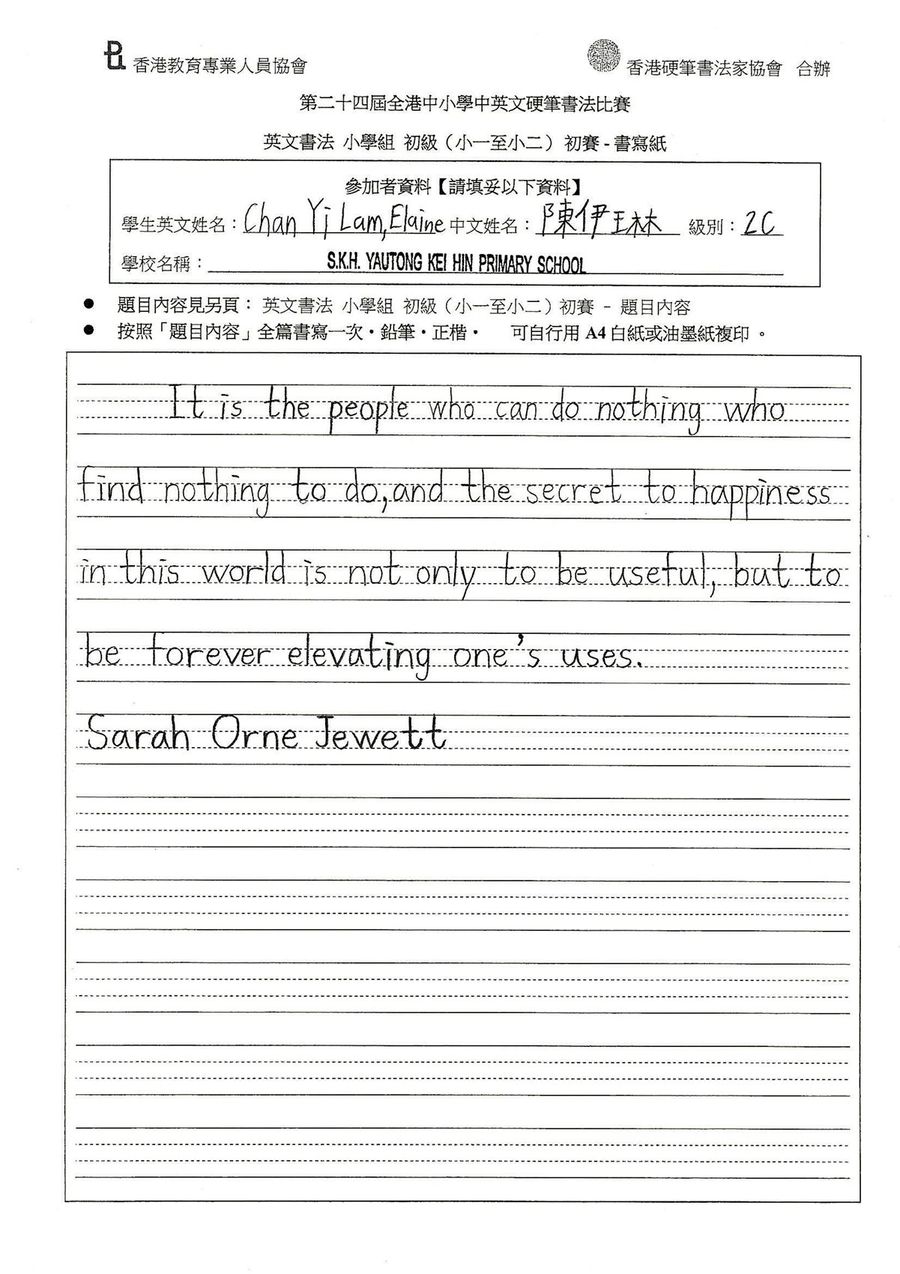 香港教育專業人員協會
香港硬筆書法家協會 合辦
第二十四屆全港中小學中英文硬筆書法比賽
英文書法 小學組 初級（小一至小二）初賽 - 書寫紙
參加者資料【請填妥以下資料】
學生英文姓名：Chan Yi Lam, Elaine 中文姓名：陳伊琳 級別：2C
學校名稱：S.K.H. YAUTONG KEI HIN PRIMARY SCHOOL
● 題目內容見另頁： 英文書法 小學組 初級（小一至小二）初賽 - 題目內容
● 按照「題目內容」全篇書寫一次‧鉛筆‧正楷‧ 可自行用 A4 白紙或油墨紙複印 。
It is the people who can do nothing who
find nothing to do, and the secret to happiness
in this world is not only to be useful, but to
be forever elevating one's uses.
Sarah Orne Jewett